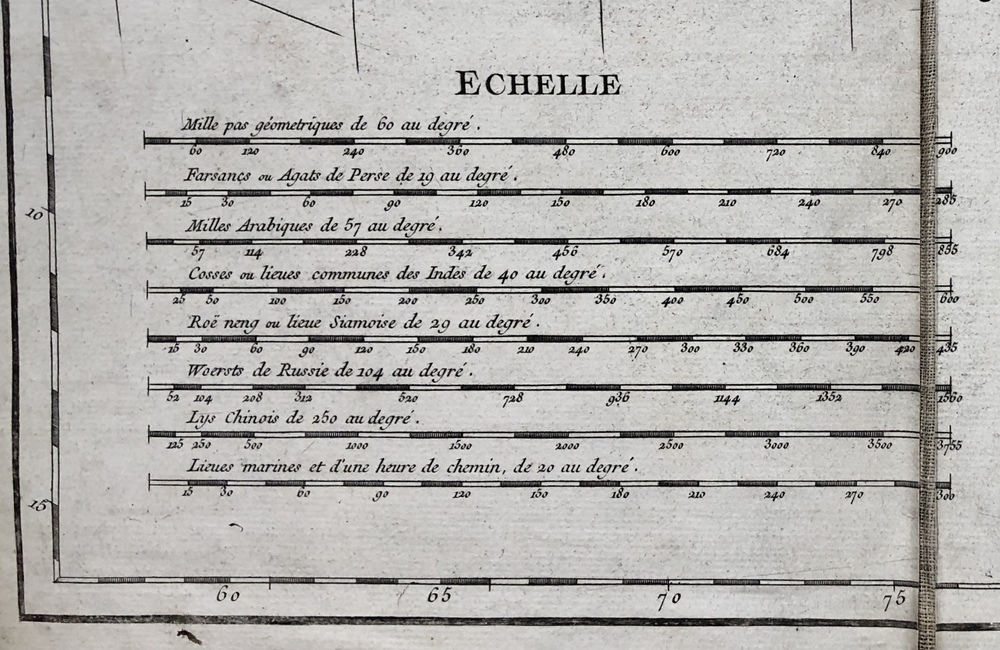 ECHELLE
Mille pas géometriques de 60 au degré.
60 120 240 360 480 600 720 840 900
Farsangs ou Agats de Perse de 19 au degré.
15 30 60 90 120 150 180 210 240 270 285
Milles Arabiques de 57 au degré.
57 114 228 342 456 570 684 798 855
Cosses ou lieues communes des Indes de 40 au degré.
25 50 100 150 200 250 300 350 400 450 500 550 600
10
Roë neng ou lieue Siamoise de 29 au degré.
15 30 60 90 120 150 180 210 240 270 300 330 360 390 420 435
Woersts de Russie de 104 au degré.
52 104 208 312 520 728 936 1144 1352 1560
Lys Chinois de 250 au degré.
125 250 500 1000 1500 2000 2500 3000 3500 3755
Lieues marines et d'une heure de chemin, de 20 au degré.
15 30 60 90 120 150 180 210 240 270 300
15
60 65 70 75